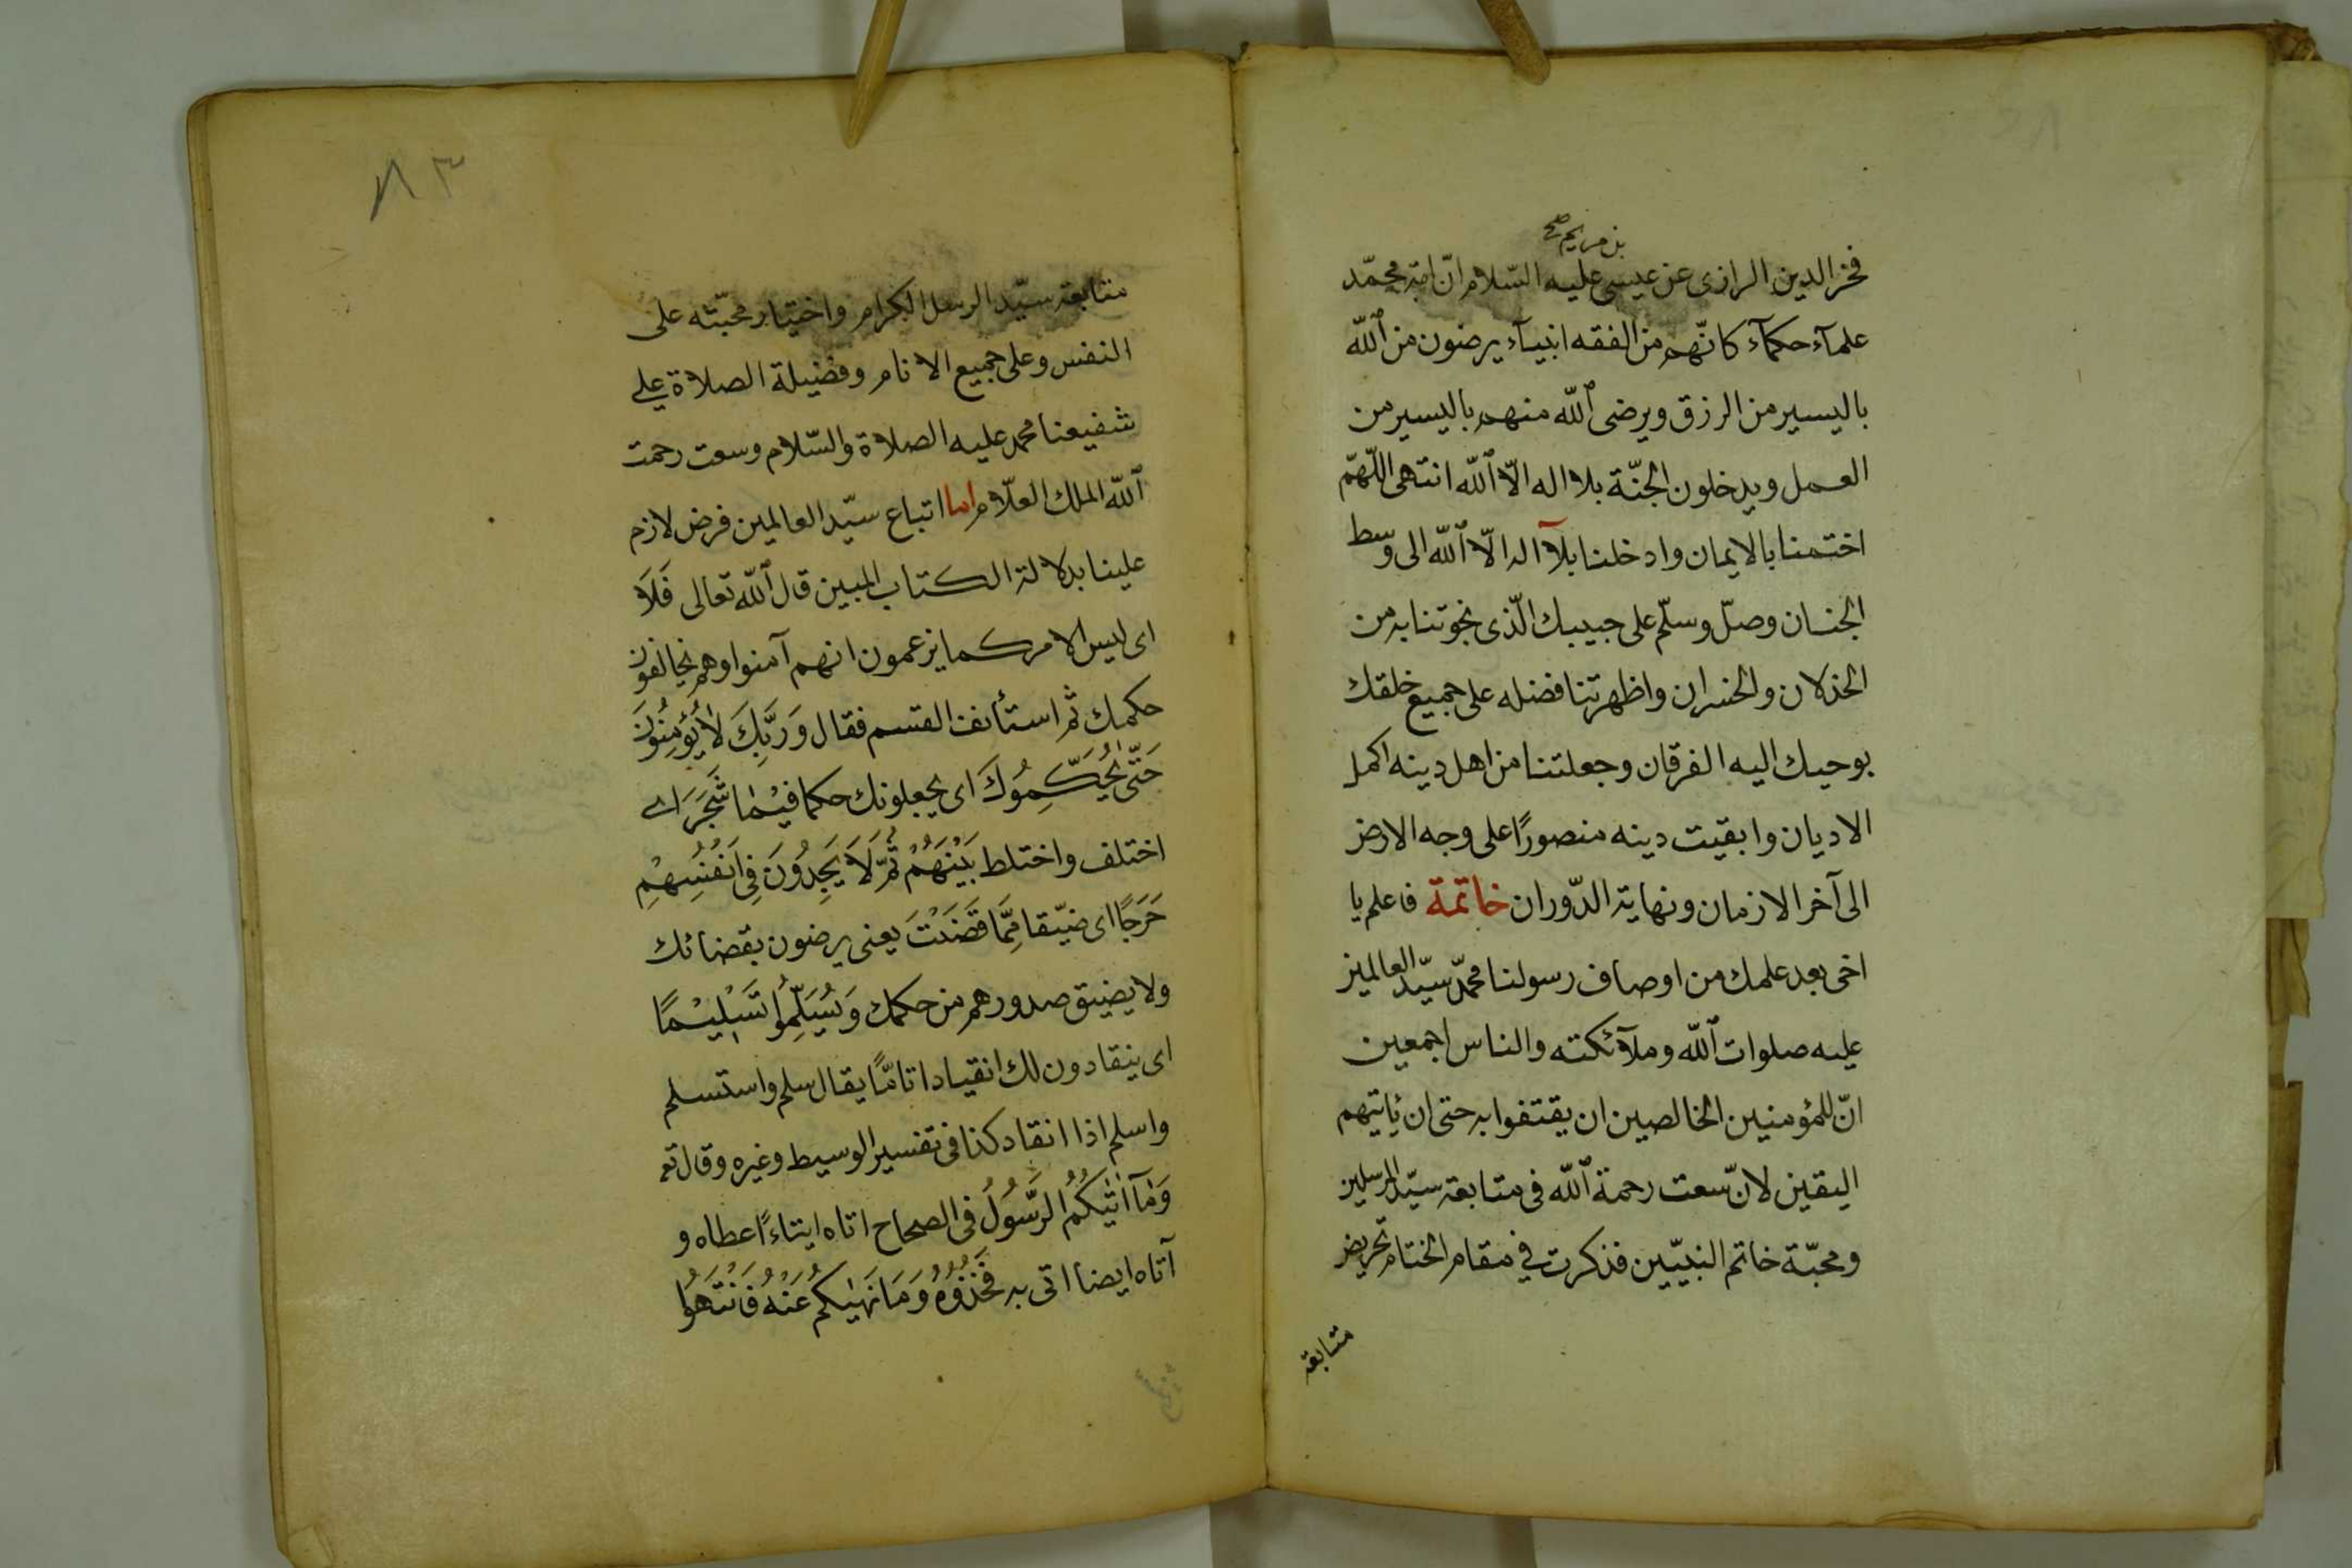 بن مريم صح
فخر الدين الرازى عن عيسى عليه السّلام انّ امّة محمّد
علمآء حكمآء كانّهم من الفقه انبيآء يرضون من الله
باليسير من الرزق ويرضى الله منهم باليسير من
العمل ويدخلون الجنّة بلا اله الّا الله انتهى اللّهمّ
اختمنا بالايمان وادخلنا بلآ اله الّا الله الى وسط
الجنان وصلّ وسلّم على حبيبك الّذى نجوتنا به من
الخذلان والخسران واظهرتنا فضله على جميع خلقك
بوحيك اليه الفرقان وجعلتنا من اهل دينه اكمل
الاديان وابقيت دينه منصورًا على وجه الارض
الى آخر الازمان ونهاية الدّوران خاتمة فاعلم يا
اخى بعد علمك من اوصاف رسولنا محمّد سيّد العالمين
عليه صلوات الله وملآئكته والناس اجمعين
انّ للمؤمنين الخالصين ان يقتفوا به حتى ان يأتيهم
اليقين لانّ سعت رحمة الله فى متابعة سيّد المرسلين
ومحبّة خاتم النبيّين فذكرت في مقام الختام تحريض
متابعة
٨٣
متابعة سيّد الرسل الكرام واختيار محبّته على
النفس وعلى جميع الانام وفضيلة الصلاة على
شفيعنا محمد عليه الصلاة والسّلام وسعت رحمت
الله الملك العلّام اما اتباع سيّد العالمين فرض لازم
علينا بدلالة الكتاب المبين قال الله تعالى فَلَا
اى ليس الامر كما يزعمون انهم آمنوا وهم يخالفون
حكمك ثم استأنف القسم فقال وَرَبِّكَ لَا يُؤْمِنُونَ
حَتّٰى يُحَكِّمُوكَ اى يجعلونك حكما فيْمَا شَجَرَ اى
اختلف واختلط بَيْنَهُمْ ثُمَّ لَا يَجِدُونَ فِى اَنْفُسِهِمْ
حَرَجًا اى ضيّقا مِمَّا قَضَيْتَ يعنى يرضون بقضائك
ولا يضيق صدورهم من حكمك وَيُسَلِّمُوا تَسْلِيْمًا
اى ينقادون لك انقيادا تامًّا يقال سلم واستسلم
واسلم اذا انقاد كذا فى تفسير الوسيط وغيره وقال تع
وَمَآ اٰتٰيكُمُ الرَّسُولُ فى الصحاح اتاه ايتاءً اعطاه و
آتاه ايضا اتى به فَخُذُوهُ وَمَا نَهٰيكُمْ عَنْهُ فَانْتَهُوا